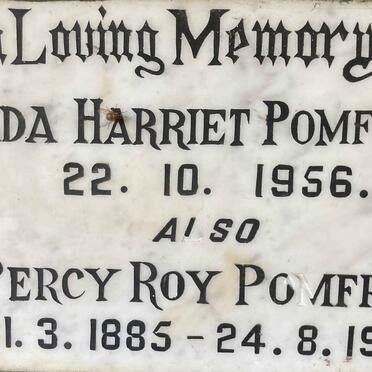 In Loving Memory
DA HARRIET POMF
22. 10. 1956.
ALSO
PERCY ROY POMFR
1. 3. 1885 - 24. 8. 19